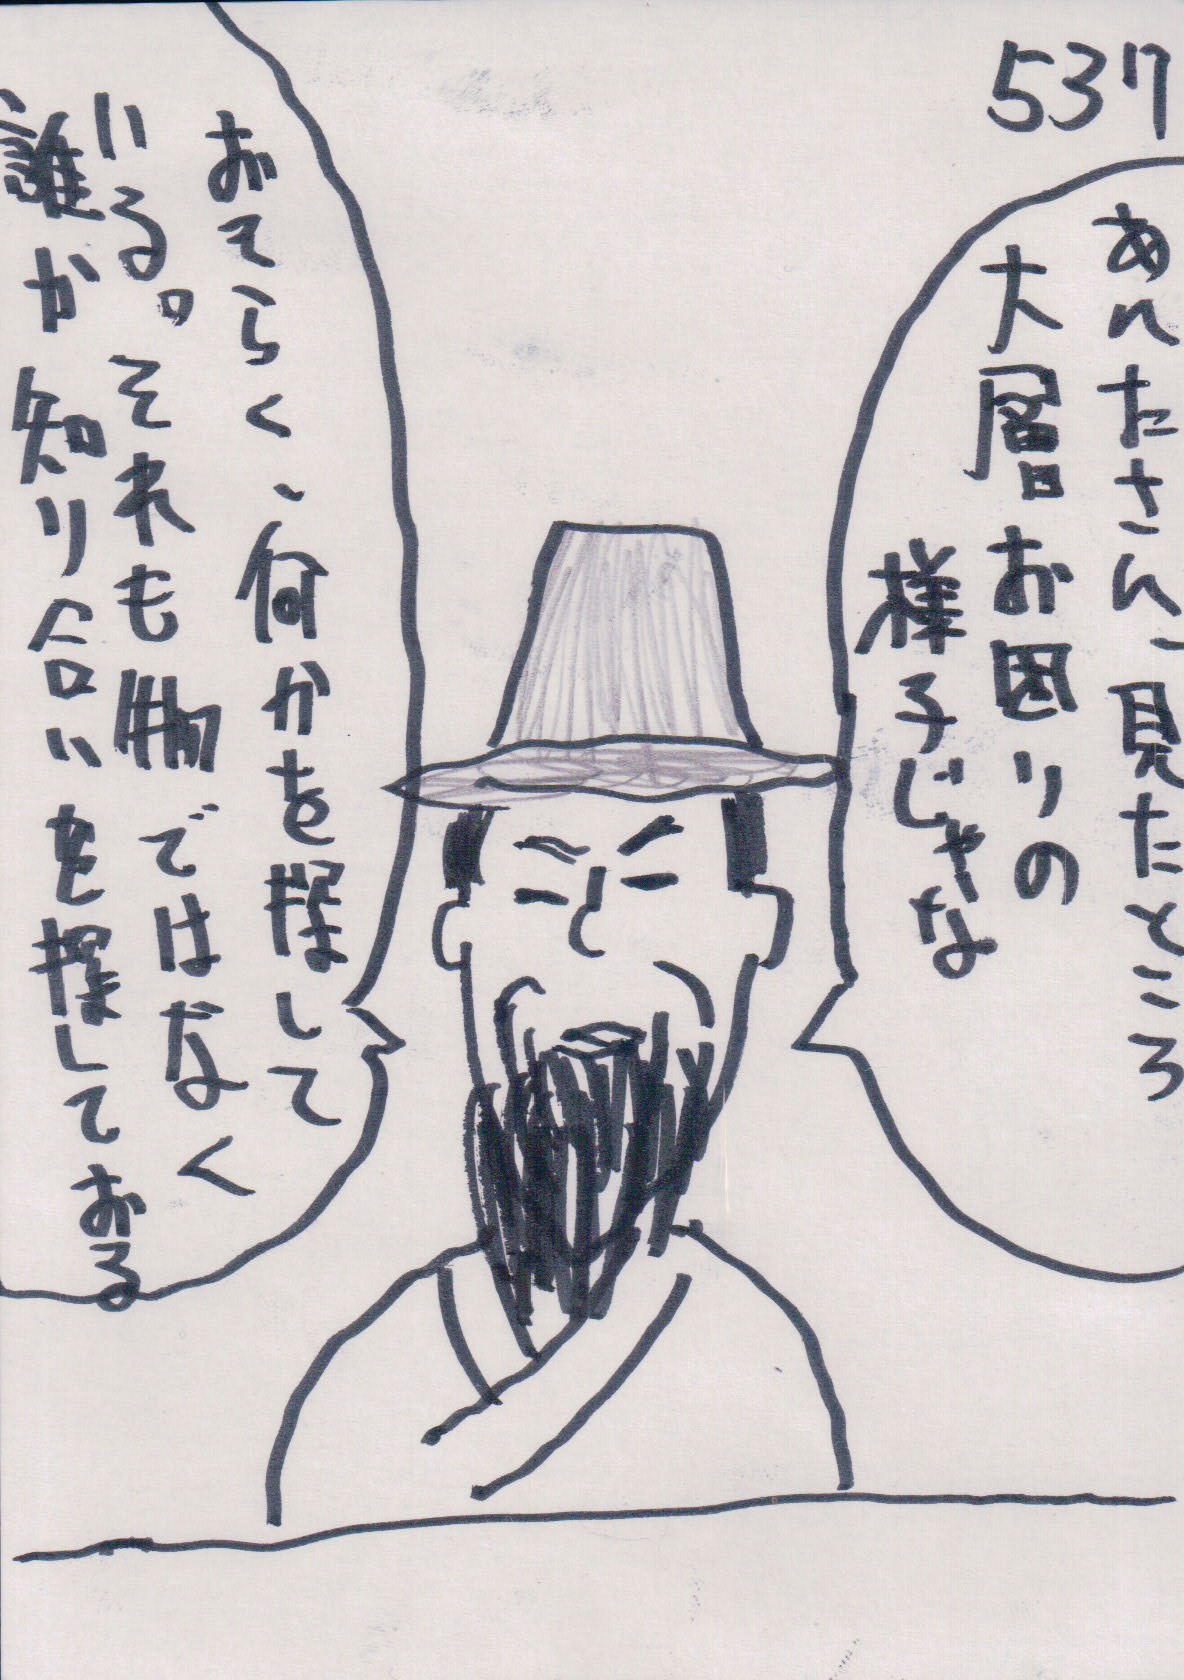 537
あんたさん、見たところ
大層お困りの
様子じゃな
おそらく、何かを探して
いる。それも物ではなく
誰か知り合いを探しておる